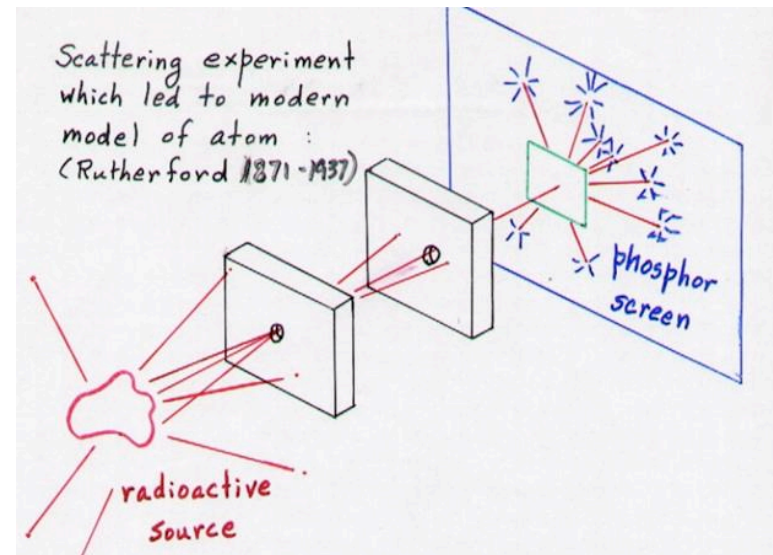 Scattering experiment
which led to modern
model of atom :
(Rutherford 1871-1937)
phosphor
screen
radioactive
source